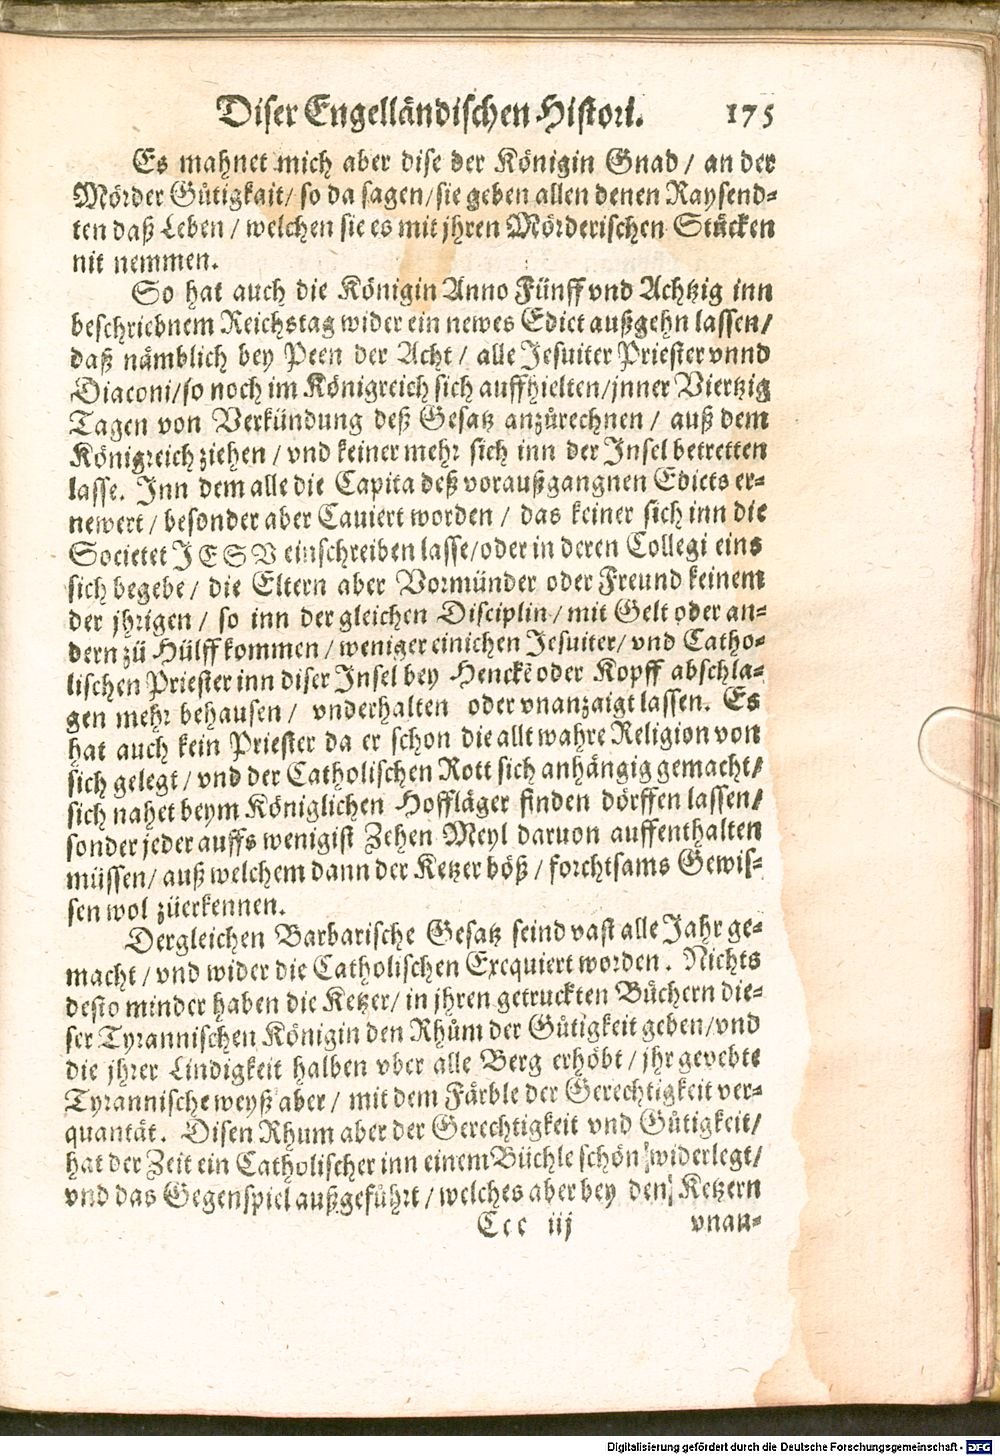 Diser Engelländischen Histori. 175
Es mahnet mich aber dise der Königin Gnad / an der
Mörder Gütigkait / so da sagen / sie geben allen denen Raysend-
ten daß Leben / welchen sie es mit jhren Mörderischen Stücken
nit nemmen.
So hat auch die Königin Anno Fünff vnd Achtzig inn
beschriebnem Reichstag wider ein newes Edict außgehn lassen /
daß nämblich bey Peen der Acht / alle Jesuiter Priester vnnd
Diaconi / so noch im Königreich sich auffhielten / jnner Viertzig
Tagen von Verkündung deß Gesatz anzůrechnen / auß dem
Königreich ziehen / vnd keiner mehr sich inn der Insel betretten
lasse. Inn dem alle die Capita deß voraußgangnen Edicts er-
newert / besonder aber Cauiert worden / das keiner sich inn die
Societet JESV einschreiben lasse / oder in deren Collegi eins
sich begebe / die Eltern aber Vormünder oder Freund keinem
der jhrigen / so inn der gleichen Disciplin / mit Gelt oder an-
dern zů Hülff kommen / weniger einichen Jesuiter / vnd Catho-
lischen Priester inn diser Insel bey Henckē oder Kopff abschla-
gen mehr behausen / vnderhalten oder vnanzaigt lassen. Es
hat auch kein Priester da er schon die allt wahre Religion von
sich gelegt / vnd der Catholischen Rott sich anhängig gemacht /
sich nahet beym Königlichen Hoffläger finden dörffen lassen /
sonder jeder auffs wenigist Zehen Meyl daruon auffenthalten
müssen / auß welchem dann der Ketzer böß / forchtsams Gewis-
sen wol zůerkennen.
Dergleichen Barbarische Gesatz seind vast alle Jahr ge-
macht / vnd wider die Catholischen Exequiert worden. Nichts
desto minder haben die Ketzer / in jhren getruckten Büchern die-
ser Tyrannischen Königin den Rhům der Gütigkeit geben / vnd
die jhrer Lindigkeit halben vber alle Berg erhöbt / jhr gevebte
Tyrannische weyß aber / mit dem Färble der Gerechtigkeit ver-
quantät. Disen Rhum aber der Gerechtigkeit vnd Gütigkeit /
hat der Zeit ein Catholischer inn einem Büchle schön widerlegt /
vnd das Gegenspiel außgeführt / welches aber bey den Ketzern
Ccc iij vnan-
Digitalisierung gefördert durch die Deutsche Forschungsgemeinschaft - DFG